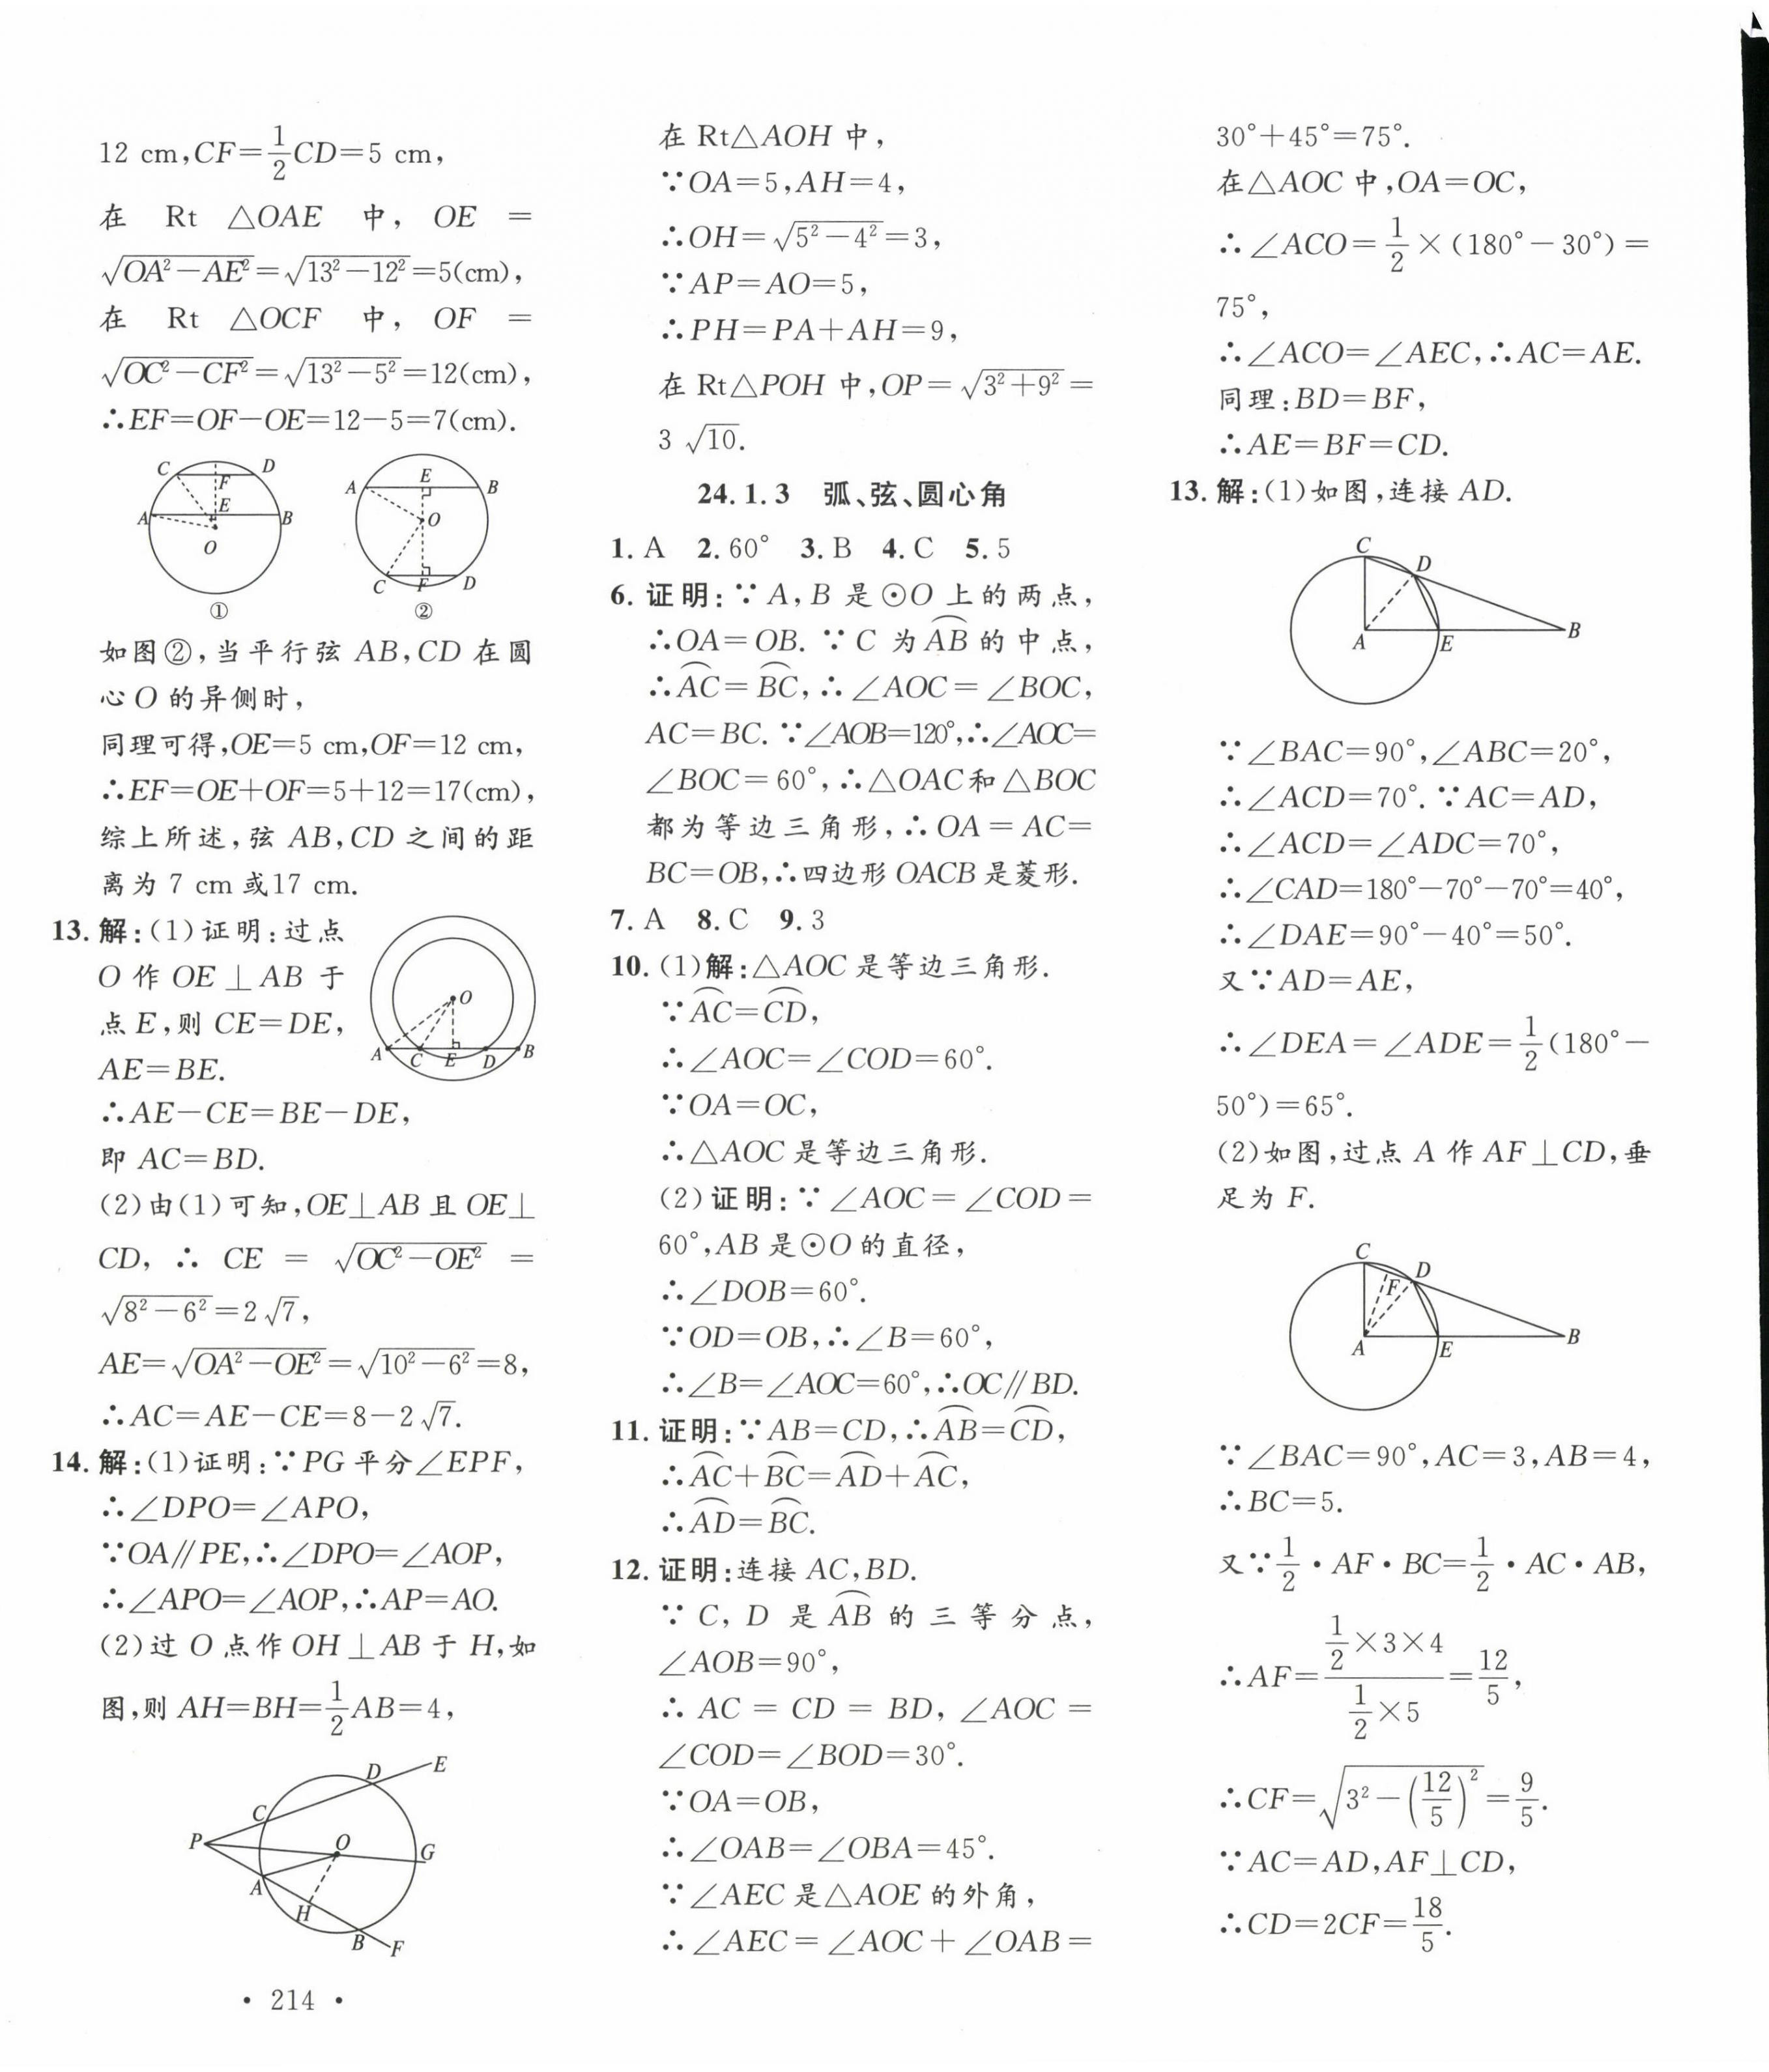 12 cm,CF=\frac{1}{2}CD=5 cm,
在 Rt △OAE 中, OE =
√(OA²-AE²)=√(13²-12²)=5(cm),
在 Rt △OCF 中, OF =
√(OC²-CF²)=√(13²-5²)=12(cm),
∴EF=OF-OE=12-5=7(cm).
C D F E A B O
A E B O C F D
① ②
如图②,当平行弦 AB,CD 在圆
心 O 的异侧时,
同理可得,OE=5 cm,OF=12 cm,
∴EF=OE+OF=5+12=17(cm),
综上所述,弦 AB,CD 之间的距
离为 7 cm 或17 cm.
13. 解:(1)证明:过点
O 作 OE⊥AB 于
点 E,则 CE=DE,
AE=BE.
O A C E D B
∴AE-CE=BE-DE,
即 AC=BD.
(2)由(1)可知,OE⊥AB 且 OE⊥
CD, ∴ CE = √(OC²-OE²) =
√(8²-6²)=2√7,
AE=√(OA²-OE²)=√(10²-6²)=8,
∴AC=AE-CE=8-2√7.
14. 解:(1)证明:∵PG 平分∠EPF,
∴∠DPO=∠APO,
∵OA∥PE,∴∠DPO=∠AOP,
∴∠APO=∠AOP,∴AP=AO.
(2)过 O 点作 OH⊥AB 于 H,如
图,则 AH=BH=\frac{1}{2}AB=4,
E D C P O G A H B F
· 214 ·
在 Rt△AOH 中,
∵OA=5,AH=4,
∴OH=√(5²-4²)=3,
∵AP=AO=5,
∴PH=PA+AH=9,
在 Rt△POH 中,OP=√(3²+9²)=
3√10.
24.1.3 弧、弦、圆心角
1. A 2. 60° 3. B 4. C 5. 5
6. 证明:∵A,B 是⊙O 上的两点,
∴OA=OB. ∵C 为\overset{⌒}{AB}的中点,
∴\overset{⌒}{AC}=\overset{⌒}{BC},∴∠AOC=∠BOC,
AC=BC. ∵∠AOB=120°,∴∠AOC=
∠BOC=60°,∴△OAC和△BOC
都为等边三角形,∴OA=AC=
BC=OB,∴四边形 OACB 是菱形.
7. A 8. C 9. 3
10. (1)解:△AOC 是等边三角形.
∵\overset{⌒}{AC}=\overset{⌒}{CD},
∴∠AOC=∠COD=60°.
∵OA=OC,
∴△AOC 是等边三角形.
(2)证明:∵∠AOC=∠COD=
60°,AB 是⊙O 的直径,
∴∠DOB=60°.
∵OD=OB,∴∠B=60°,
∴∠B=∠AOC=60°,∴OC∥BD.
11. 证明:∵AB=CD,∴\overset{⌒}{AB}=\overset{⌒}{CD},
∴\overset{⌒}{AC}+\overset{⌒}{BC}=\overset{⌒}{AD}+\overset{⌒}{AC},
∴\overset{⌒}{AD}=\overset{⌒}{BC}.
12. 证明:连接 AC,BD.
∵ C, D 是 \overset{⌒}{AB} 的三等分点,
∠AOB=90°,
∴ AC = CD = BD, ∠AOC =
∠COD=∠BOD=30°.
∵OA=OB,
∴∠OAB=∠OBA=45°.
∵∠AEC 是△AOE 的外角,
∴∠AEC=∠AOC+∠OAB=
30°+45°=75°.
在△AOC 中,OA=OC,
∴∠ACO=\frac{1}{2}×(180°-30°)=
75°,
∴∠ACO=∠AEC,∴AC=AE.
同理:BD=BF,
∴AE=BF=CD.
13. 解:(1)如图,连接 AD.
C D A E B
∵∠BAC=90°,∠ABC=20°,
∴∠ACD=70°. ∵AC=AD,
∴∠ACD=∠ADC=70°,
∴∠CAD=180°-70°-70°=40°,
∴∠DAE=90°-40°=50°.
又∵AD=AE,
∴∠DEA=∠ADE=\frac{1}{2}(180°-
50°)=65°.
(2)如图,过点 A 作 AF⊥CD,垂
足为 F.
C D F A E B
∵∠BAC=90°,AC=3,AB=4,
∴BC=5.
又∵\frac{1}{2}·AF·BC=\frac{1}{2}·AC·AB,
∴AF=\frac{\frac{1}{2}×3×4}{\frac{1}{2}×5}=\frac{12}{5},
∴CF=√(3²-(\frac{12}{5})²)=\frac{9}{5}.
∵AC=AD,AF⊥CD,
∴CD=2CF=\frac{18}{5}.